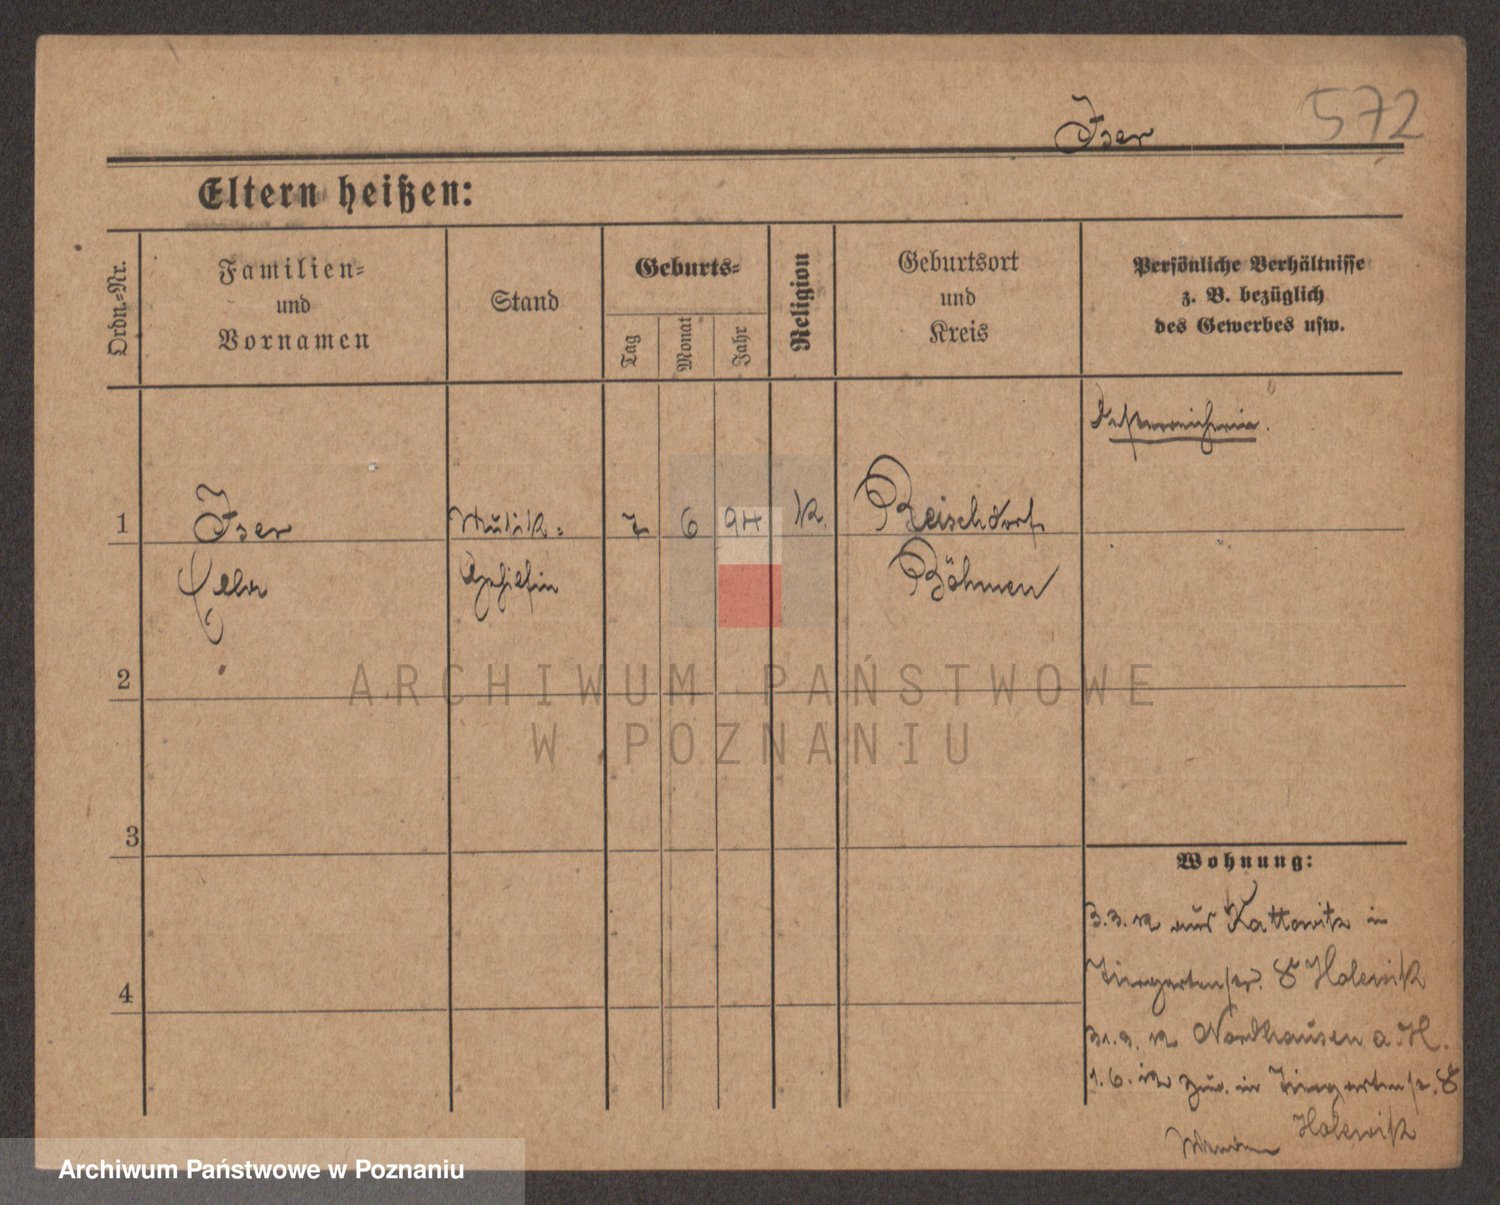 572
Iser
Eltern heißen:
Ordn.=Nr.
Familien=
und
Vornamen
Stand
Geburts=
Tag
Monat
Jahr
Religion
Geburtsort
und
Kreis
Persönliche Verhältnisse
z. B. bezüglich
des Gewerbes usw.
Oesterreicherin.
1
Iser
Musik=
7
6
94
K.
Reischdorf
Ella
Gehilfin
Böhmen
2
3
4
Wohnung:
3.3.12 aus Kattowitz in
Tiergartenstr. 8 Holewik
31.3.12 Nordhausen a. H.
1.6.12 zur. in Tiergartenstr. 8
Holewik
Wenden
ARCHIWUM PAŃSTWOWE
W POZNANIU
Archiwum Państwowe w Poznaniu